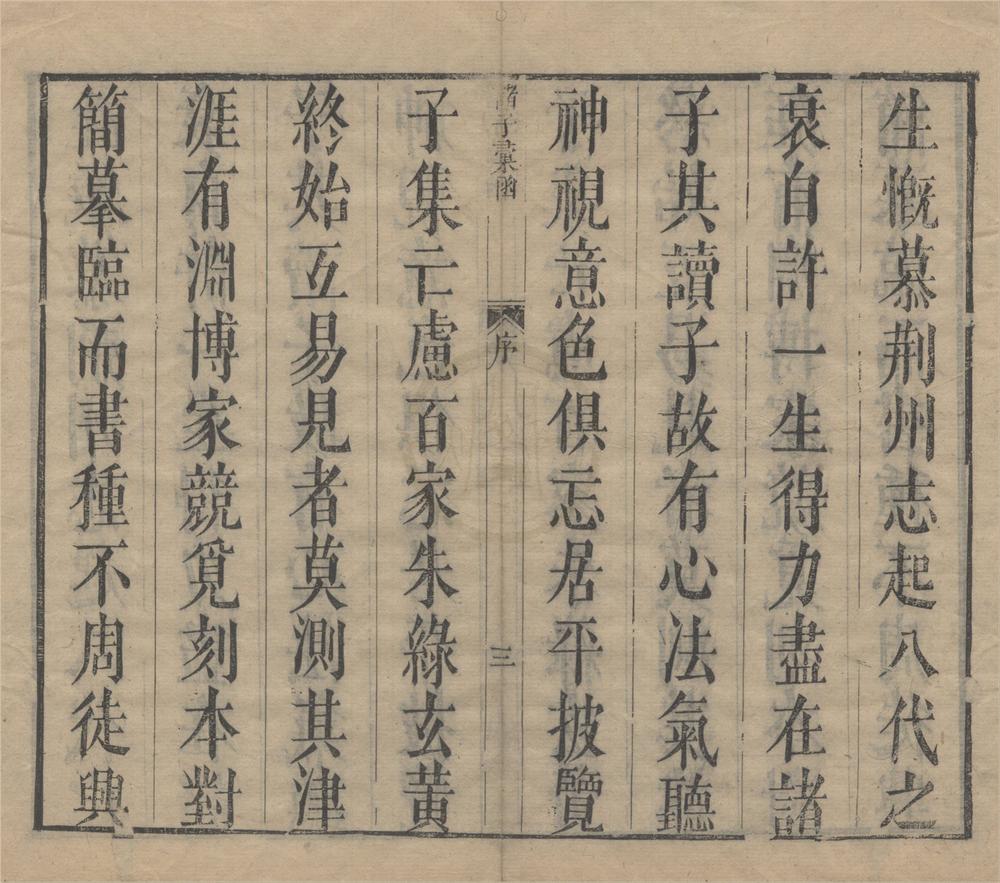 生慨慕荆州志起八代之
衰自許一生得力盡在諸
子其讀子故有心法氣聽
神視意色俱忘居平披覽
諸子彙函
序
三
子集亡慮百家朱綠玄黃
終始互易見者莫測其津
涯有淵博家競覓刻本對
簡摹臨而書種不周徒興